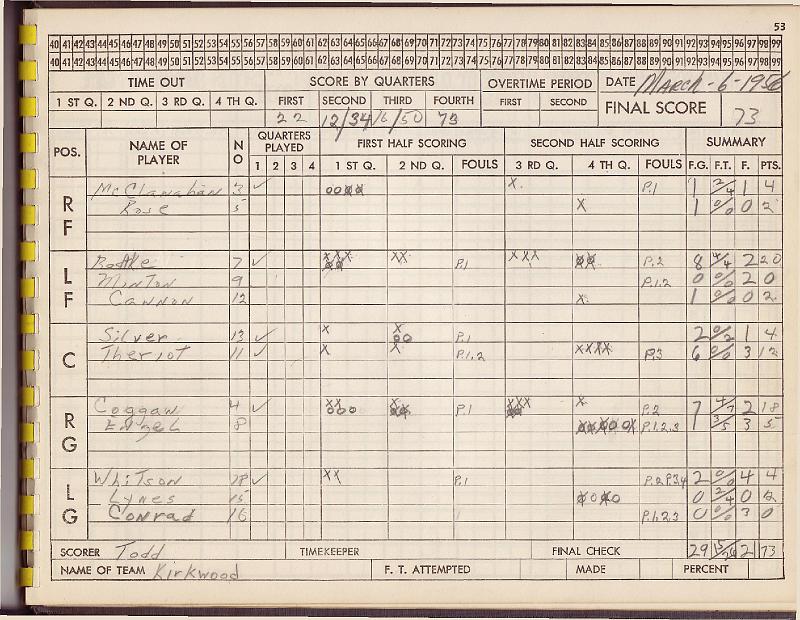 53
40 41 42 43 44 45 46 47 48 49 50 51 52 53 54 55 56 57 58 59 60 61 62 63 64 65 66 67 68 69 70 71 72 73 74 75 76 77 78 79 80 81 82 83 84 85 86 87 88 89 90 91 92 93 94 95 96 97 98 99
40 41 42 43 44 45 46 47 48 49 50 51 52 53 54 55 56 57 58 59 60 61 62 63 64 65 66 67 68 69 70 71 72 73 74 75 76 77 78 79 80 81 82 83 84 85 86 87 88 89 90 91 92 93 94 95 96 97 98 99
TIME OUT SCORE BY QUARTERS OVERTIME PERIOD DATE March-6-1956
1 ST Q. 2 ND Q. 3 RD Q. 4 TH Q. FIRST SECOND THIRD FOURTH FIRST SECOND FINAL SCORE 73
22 12/34 16/50 73
POS. NAME OF PLAYER NO QUARTERS PLAYED FIRST HALF SCORING SECOND HALF SCORING SUMMARY
1 2 3 4 1 ST Q. 2 ND Q. FOULS 3 RD Q. 4 TH Q. FOULS F.G. F.T. F. PTS.
RF McClanahan 3 ✓ X P.1 1 2/4 1 4
Rose 5 X 1 0/0 0 2
LF 7 ✓ XXX XX P.1 XXX P.2 8 4/4 2 20
Minton 9 P.1.2 0 0/0 2 0
Cannon 12 X 1 0/0 0 2
C Silver 13 ✓ X X P.1 2 0/2 1 4
Theriot 11 ✓ X X P.1.2 XXXX P.3 6 0/0 3 12
RG Coggan 4 ✓ XX X P.1 XXX X P.2 7 4/7 2 18
Engel 8 P.1.2.3 1 3/5 3 5
LG Whitson ✓ XX P.1 P.2 P.3.4 2 0/0 4 4
Lynes 15 0 2/4 0 2
Conrad 16 P.1.2.3 0 0/0 3 0
SCORER Todd TIMEKEEPER FINAL CHECK 29 15/26 21 73
NAME OF TEAM Kirkwood F. T. ATTEMPTED MADE PERCENT